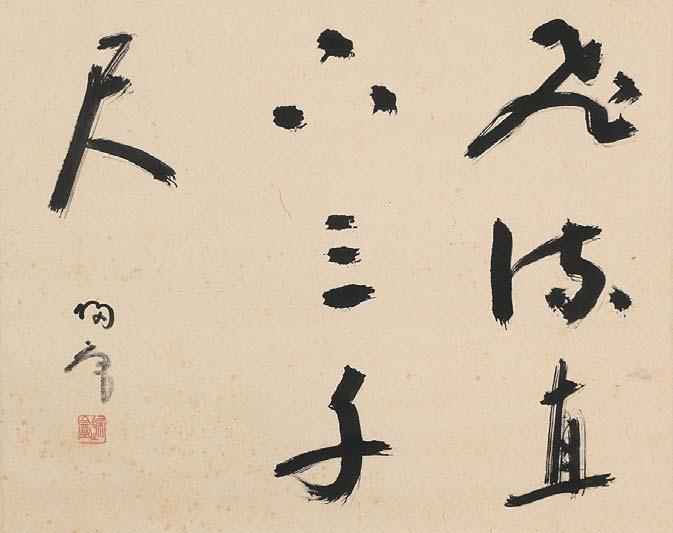 飛流直
下三千
尺